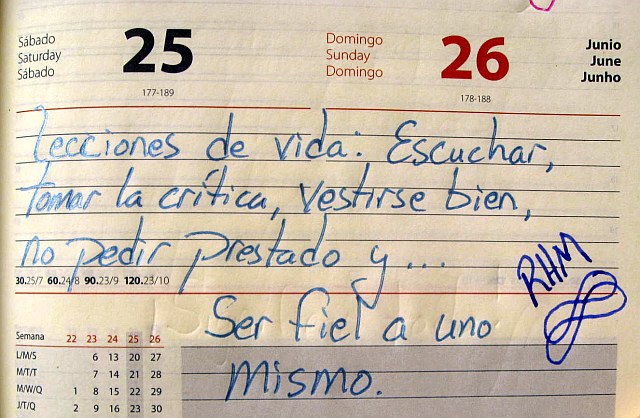 Sábado 25 Domingo 26 Junio
Saturday Sunday June
Sábado Domingo Junho
177-189 178-188
Lecciones de vida: Escuchar,
tomar la crítica, vestirse bien,
no pedir prestado y...
30.25/7 60.24/8 90.23/9 120.23/10
RHM
Ser fiel a uno
mismo.
Semana 22 23 24 25 26
L/M/S 6 13 20 27
M/T/T 7 14 21 28
M/W/Q 1 8 15 22 29
J/T/Q 2 9 16 23 30